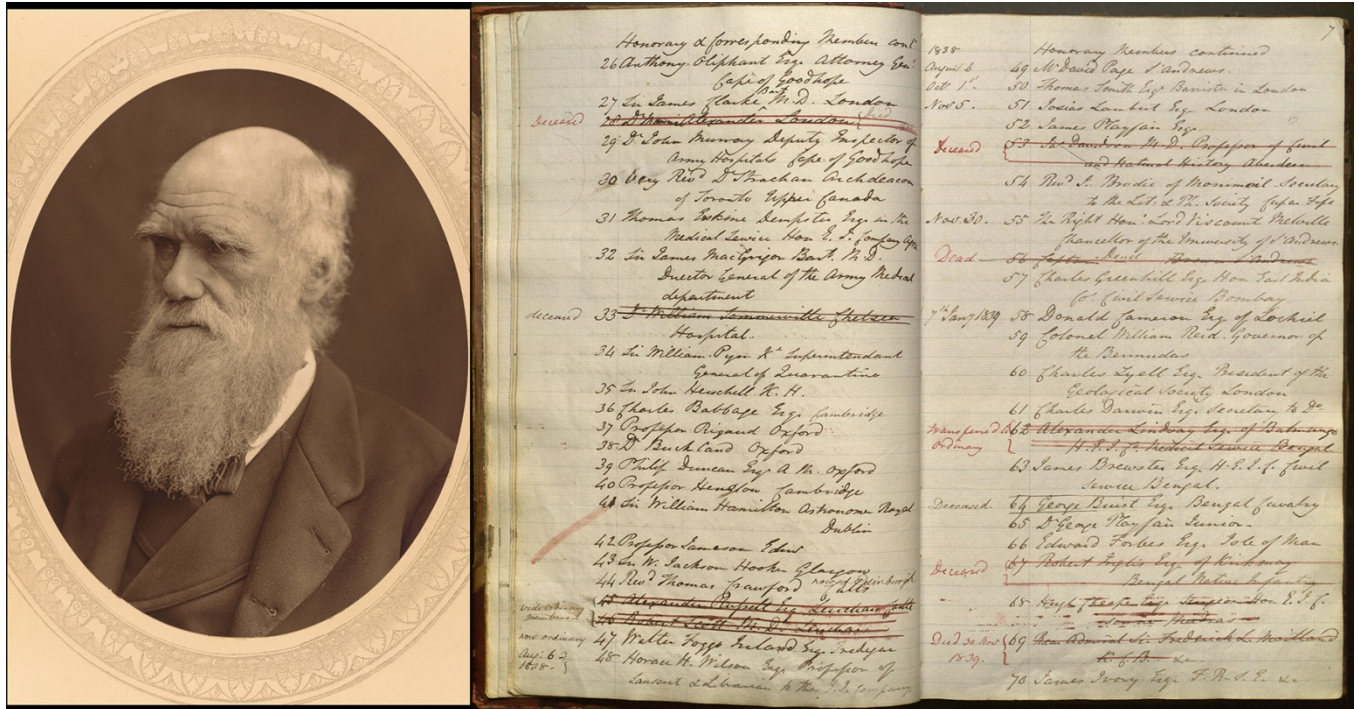 Honorary & Corresponding Members cont
26 Anthony Oliphant Esq. Attorney Gen.
Cape of Goodhope
Bart
27 Sir James Clarke M.D. London
deceased
28 Alexander London
29 Dr John Murray Deputy Inspector of
Army Hospital Cape of Goodhope
30 Very Revd Dr Strachan Archdeacon
of Toronto Upper Canada
31 Thomas Erskine Dempster Esq. in the
Medical Service Hon E. I. Company
32 Sir James MacGrigor Bart. M.D.
Director General of the Army Medical
department
deceased 33 Dr William Sommerville Chelsea
Hospital.
34 Sir William Pym Kt Superintendant
General of Quarantine
35 Sir John Herschell K. H.
36 Charles Babbage Esq. Cambridge
37 Professor Rigaud Oxford
38 Dr Buckland Oxford
39 Philip Duncan Esq. A. M. Oxford
40 Professor Henslow Cambridge
41 Sir William Hamilton Astronomer Royal
Dublin
42 Professor Jameson Edinr
43 Sir W. Jackson Hooker Glasgow
44 Revd Thomas Crawford
45 Alexander Esq.
members 46 Robert M.D.
now ordinary 47 Walter Foggo Ireland Esq.
Aug. 6 48 Horace H. Wilson Esq. Professor of
1838
Sanscrit & Librarian to the E. I. Company
7
1838 Honorary Members continued
August 6 49 Mr David Page St Andrews.
Oct 1st 50 Thomas Smith Esq. Barrister in London
Nov 5. 51 Josias Lambert Esq. London
52 James Playfair Esq.
Deceased 53 Davidson M.D. Professor of Civil
and Natural History Aberdeen
54 Revd J. Brodie of Monimail Secretary
to the Lit. & Ph. Society Cupar Fife
Nov 30. 55 The Right Hon. Lord Viscount Melville
Chancellor of the University of St Andrews
Dead 56
57 Charles Greenhill Esq. Hon. East India
Co. Civil Service Bombay
7th Jany 1839 58 Donald Cameron Esq of Lochiel
59 Colonel William Reid. Governor of
the Bermudas
60 Charles Lyell Esq. President of the
Geological Society London
61 Charles Darwin Esq. Secretary to Do
transferred to 62 Alexander Lindsay Esq. of
Ordinary H.E.I.C. Medical Service Bengal
63 James Brewster Esq. H.E.I.C. Civil
Service Bengal.
Deceased. 64 George Buist Esq. Bengal Cavalry
65 Dr George Playfair Junior
66 Edward Forbes Esq. Isle of Man
Deceased 67 Robert Inglis Esq. of Kirkmay
Bengal Native Infantry
68 Hugh Esq. Surgeon Hon. E. I. C.
Service Madras
Died 30 Nov 69 Rear Admiral Sir Frederick L. Maitland
1839. K.C.B. &c
70 James Ivory Esq. F.R.S.E. &c.